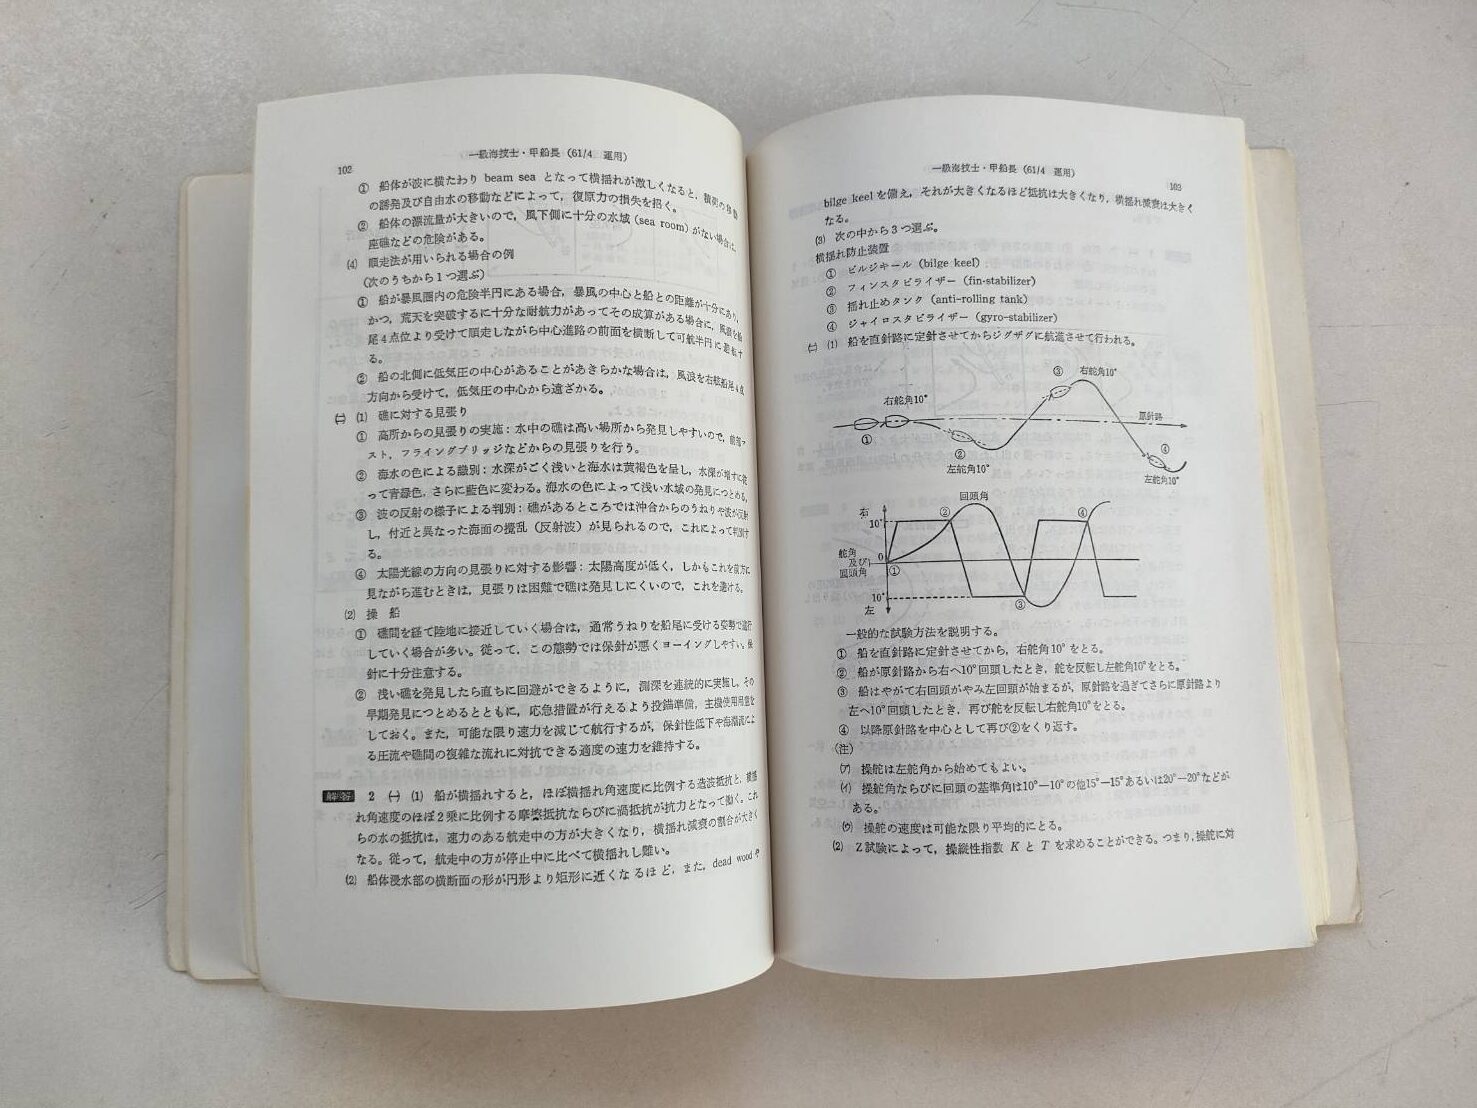 102
一級海技士・甲船長（61/4 運用）
① 船体が波に横たわり beam sea となって横揺れが激しくなると，積荷の移動
の誘発及び自由水の移動などによって，復原力の損失を招く。
② 船体の漂流量が大きいので，風下側に十分の水域（sea room）がない場合は，
座礁などの危険がある。
(4) 順走法が用いられる場合の例
（次のうちから1つ選ぶ）
① 船が暴風圏内の危険半円にある場合，暴風の中心と船との距離が十分にあり，
かつ，荒天を突破するに十分な耐航力があってその成算がある場合に，風浪を船
尾4点位より受けて順走しながら中心進路の前面を横断して可航半円に避航す
る。
② 船の北側に低気圧の中心があることがあきらかな場合は，風浪を右舷船尾4点
方向から受けて，低気圧の中心から遠ざかる。
㈡ (1) 礁に対する見張り
① 高所からの見張りの実施：水中の礁は高い場所から発見しやすいので，前部マ
スト，フライングブリッジなどからの見張りを行う。
② 海水の色による識別：水深がごく浅いと海水は黄褐色を呈し，水深が増すに従
って青緑色，さらに藍色に変わる。海水の色によって浅い水域の発見につとめる。
③ 波の反射の様子による判別：礁があるところでは沖合からのうねりや波が反射
し，付近と異なった海面の攪乱（反射波）が見られるので，これによって判別す
る。
④ 太陽光線の方向の見張りに対する影響：太陽高度が低く，しかもこれを前方に
見ながら進むときは，見張りは困難で礁は発見しにくいので，これを避ける。
(2) 操船
① 礁間を経て陸地に接近していく場合は，通常うねりを船尾に受ける姿勢で進行
していく場合が多い。従って，この態勢では保針が悪くヨーイングしやすい。保
針に十分注意する。
② 浅い礁を発見したら直ちに回避ができるように，測深を連続的に実施し，その
早期発見につとめるとともに，応急措置が行えるよう投錨準備，主機使用用意を
しておく。また，可能な限り速力を減じて航行するが，保針性低下や海潮流によ
る圧流や礁間の複雑な流れに対抗できる適度の速力を維持する。
解答 2 ㈠ (1) 船が横揺れすると，ほぼ横揺れ角速度に比例する造波抵抗と，横揺
れ角速度のほぼ2乗に比例する摩擦抵抗ならびに渦抵抗が抗力となって働く。これ
らの水の抵抗は，速力のある航走中の方が大きくなり，横揺れ減衰の割合が大きく
なる。従って，航走中の方が停止中に比べて横揺れし難い。
(2) 船体浸水部の横断面の形が円形より矩形に近くなるほど，また，dead woodや
一級海技士・甲船長（61/4 運用）
103
bilge keelを備え，それが大きくなるほど抵抗は大きくなり，横揺れ減衰は大きく
なる。
(3) 次の中から3つ選ぶ。
横揺れ防止装置
① ビルジキール（bilge keel）
② フィンスタビライザー（fin-stabilizer）
③ 揺れ止めタンク（anti-rolling tank）
④ ジャイロスタビライザー（gyro-stabilizer）
㈡ (1) 船を直針路に定針させてからジグザグに航進させて行われる。
③ 右舵角10°
右舵角10°
原針路
①
②
④
左舵角10°
左舵角10°
右
② 回頭角
④
10°
舵角
及び
回頭角
0
①
10°
③
左
一般的な試験方法を説明する。
① 船を直針路に定針させてから，右舵角10°をとる。
② 船が原針路から右へ10°回頭したとき，舵を反転し左舵角10°をとる。
③ 船はやがて右回頭がやみ左回頭が始まるが，原針路を過ぎてさらに原針路より
左へ10°回頭したとき，再び舵を反転し右舵角10°をとる。
④ 以降原針路を中心として再び②をくり返す。
（注）
(ア) 操舵は左舵角から始めてもよい。
(イ) 操舵角ならびに回頭の基準角は10°—10°の他15°—15°あるいは20°—20°などが
ある。
(ウ) 操舵の速度は可能な限り平均的にとる。
(2) Z試験によって，操縦性指数 K と T を求めることができる。つまり，操舵に対